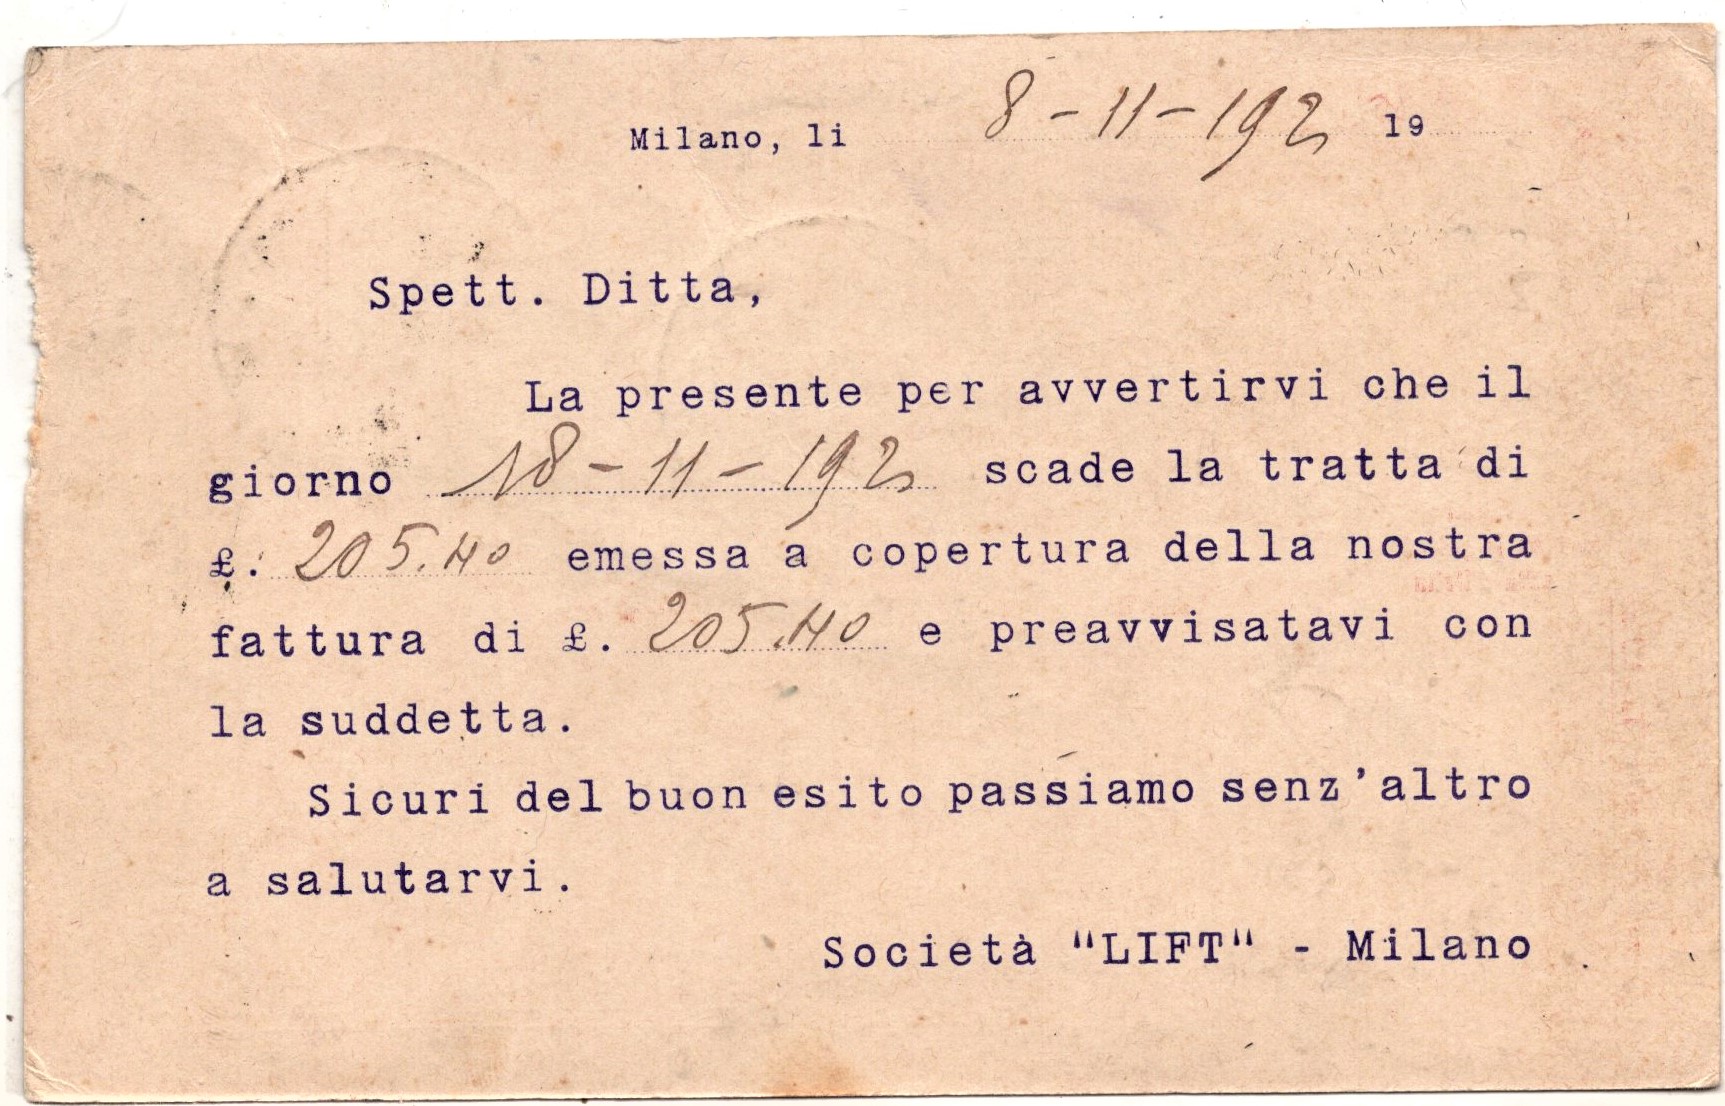 Milano, li 8-11-192 19
Spett. Ditta,
La presente per avvertirvi che il
giorno 18-11-192 scade la tratta di
£. 205.40 emessa a copertura della nostra
fattura di £. 205.40 e preavvisatavi con
la suddetta.
Sicuri del buon esito passiamo senz'altro
a salutarvi.
Società "LIFT" - Milano